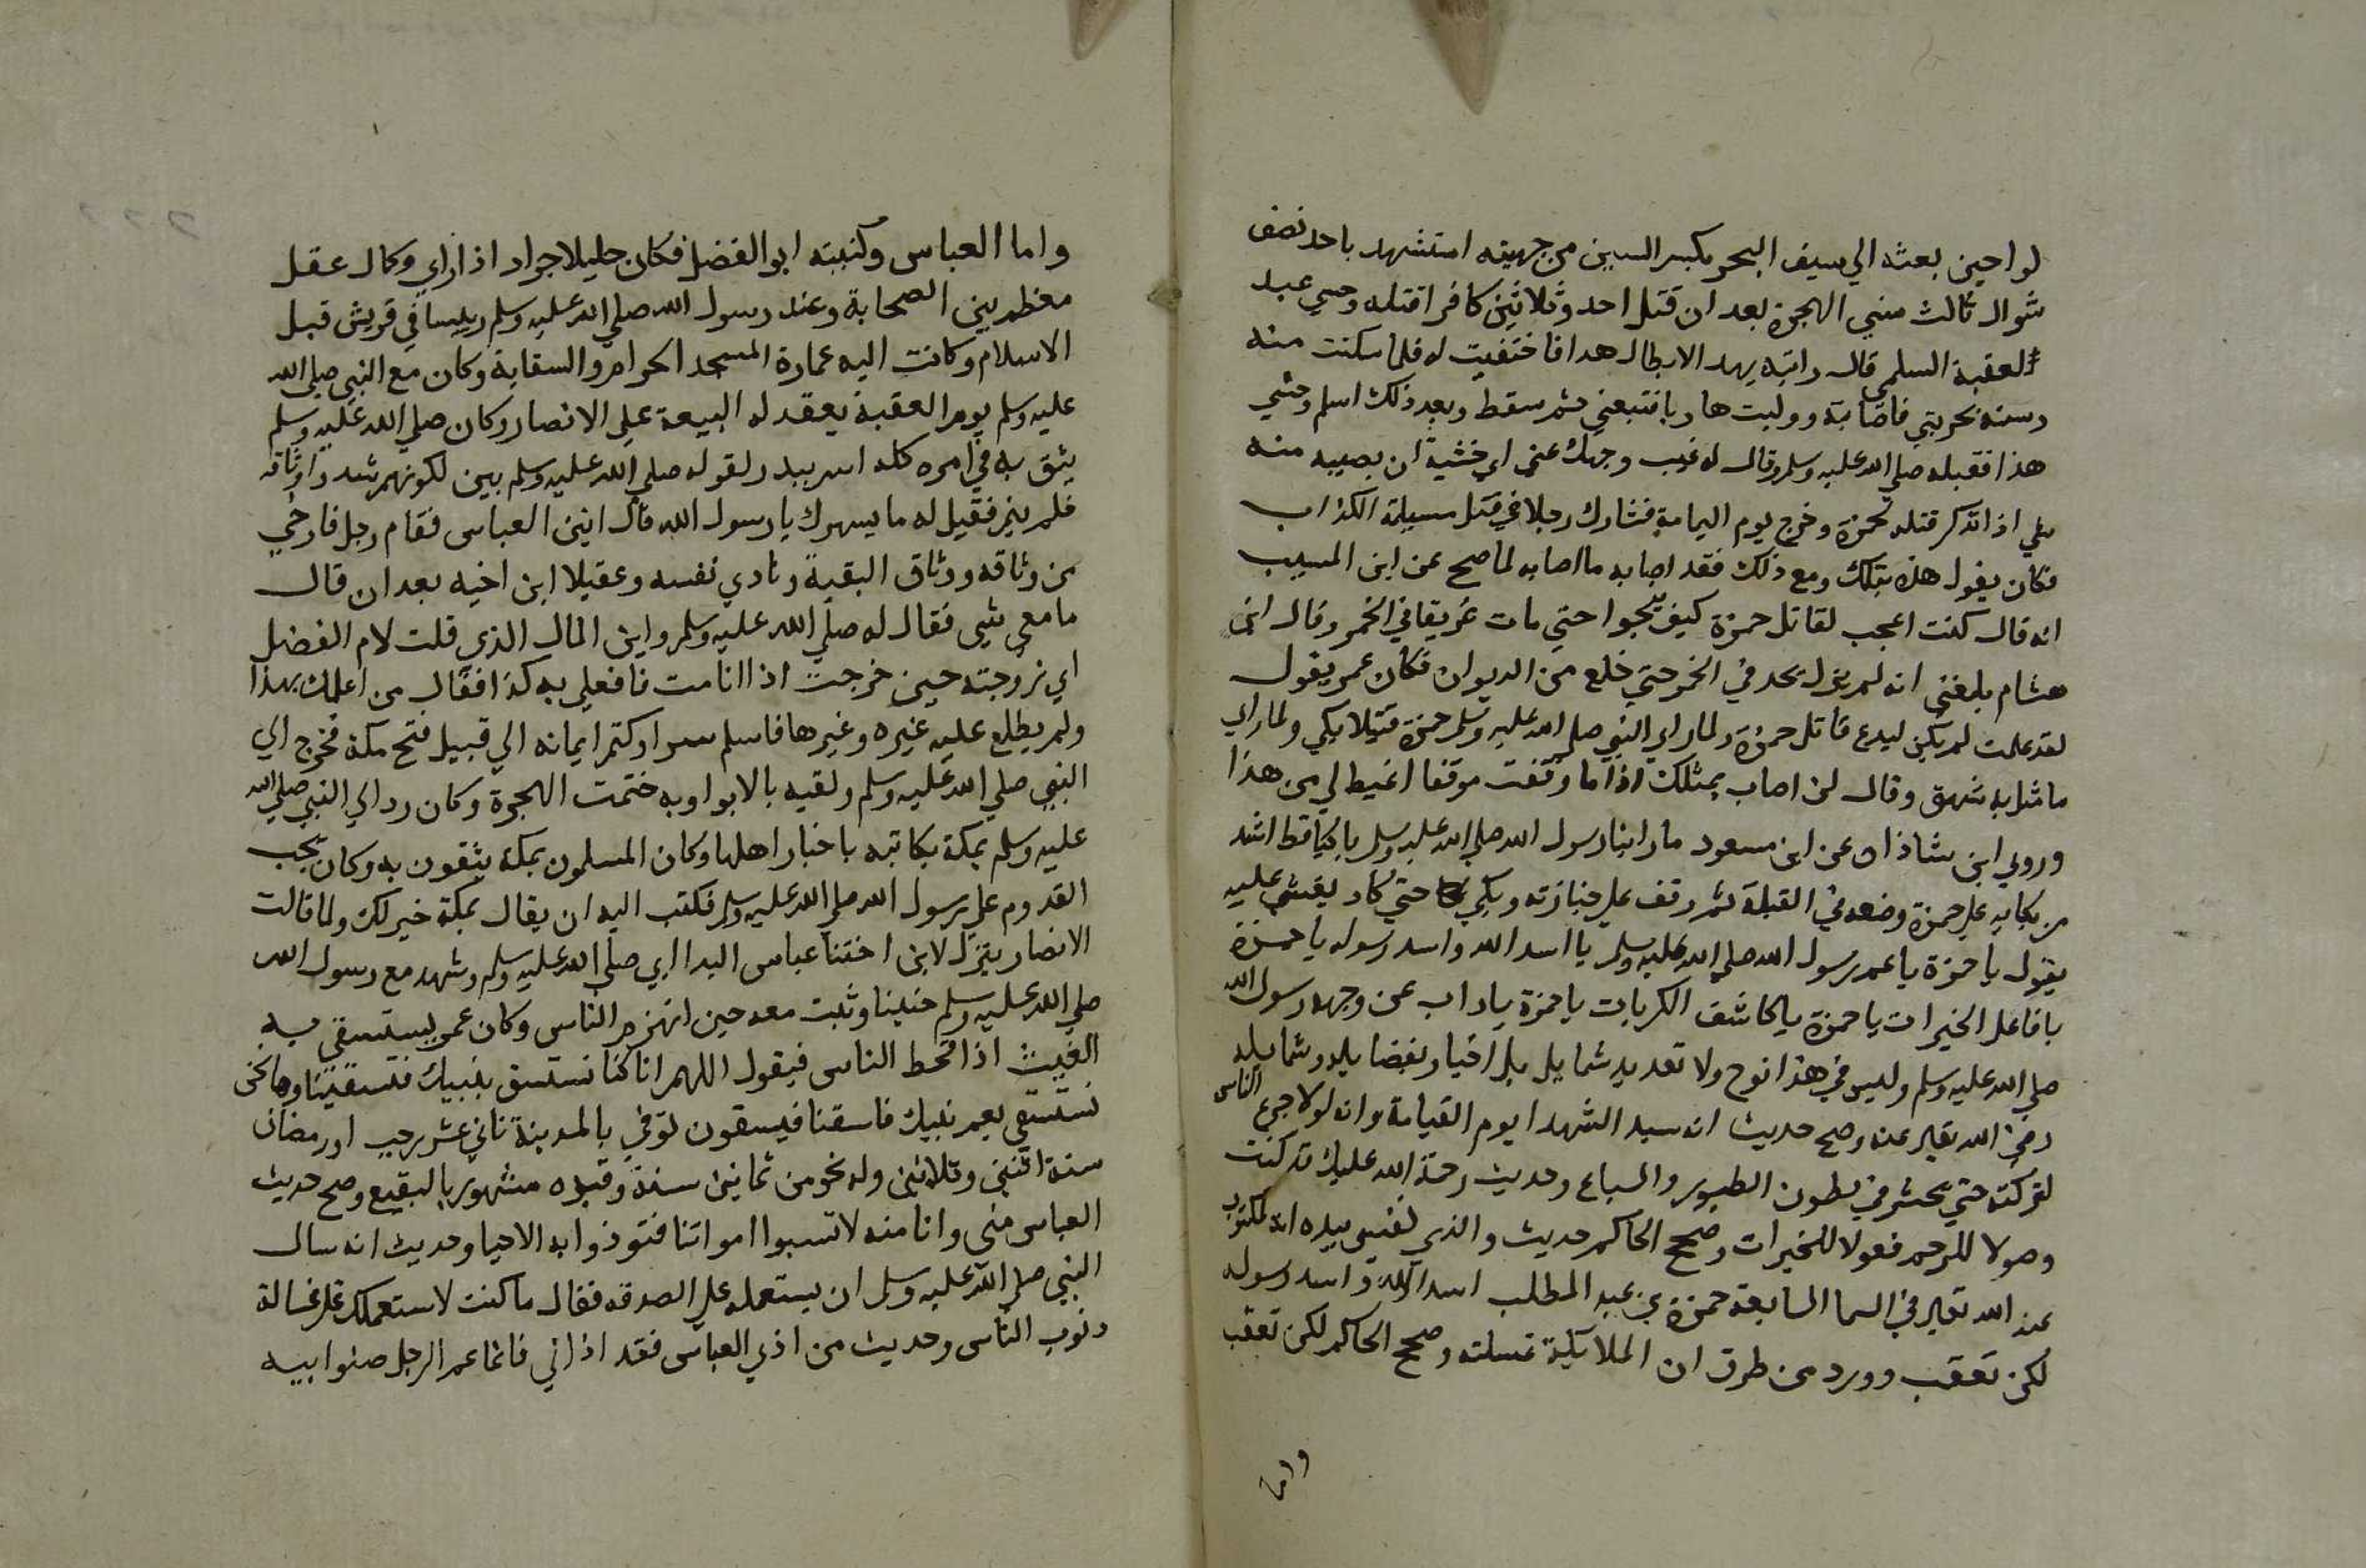 لواحين بعثه الي سيف البحر بكسر السين من جهينه استشهد باحد نصف
شوال ثالث سني الهجرة بعد ان قتل احد وثلاثين كافرا قتله وحشي عبد
العقبة السلمي قال رايته يهد الابطال هدا فاختفيت له فلما سكنت منه
رميته بحربتي فاصابته وولبت هاربا فتبعني ثم سقط وبعد ذلك اسلم وحشي
هذا فقبله صلي الله عليه وسلم وقال له غيب وجهك عني اي خشية ان يصيبه منه
شي اذا تذكر قتله لحمزة وخرج يوم اليمامة فشارك رجلا في قتل مسيلمة الكذاب
فكان يقول هذه بتلك ومع ذلك فقد اصابه ما اصابه لما صح عن ابن المسيب
انه قال كنت اعجب لقاتل حمزة كيف ينجوا حتي مات غريقا في الخمر وقال ابن
هشام بلغني انه لم يزل يحد في الخمر حتي خلع من الديوان فكان عمر يقول
لقد علمت لم يكن ليدع قاتل حمزة ولما راي النبي صلي الله عليه وسلم حمزة قتيلا بكي ولما راي
ما مثل به شهق وقال لن اصاب بمثلك اذا ما وقفت موقفا اغيظ لي من هذا
وروي ابن شاذان عن ابن مسعود ما راينا رسول الله صلي الله عليه وسلم باكيا قط اشد
من بكايه علي حمزة وضعه في القبلة ثم وقف علي جنازته وبكي حتي كاد يغشي عليه
يقول يا حمزة يا عم رسول الله صلي الله عليه وسلم يا اسد الله واسد رسوله يا حمزة
يا فاعل الخيرات يا حمزة يا كاشف الكربات يا حمزة يا داب عن وجه رسول الله
صلي الله عليه وسلم وليس في هذا نوح ولا تعديد شمايل بل اخبار بفضايله وشمايله
رضي الله تعالي عنه وصح حديث انه سيد الشهدا يوم القيامة وانه لولا جزع الناس
لتركته حتي يحشر في بطون الطيور والسباع وحديث رحمة الله عليك قد كنت
وصولا للرحم فعولا للخيرات وصحح الحاكم حديث والذي نفسي بيده انه لمكتوب
عند الله تعالي في السما السابعة حمزة بن عبد المطلب اسد الله واسد رسوله
لكن تعقب وورد من طرق ان الملايكة غسلته وصحح الحاكم لكن تعقب
واما
واما العباس وكنيته ابو الفضل فكان جليلا جوادا ذا راي وكمال عقل
معظم بين الصحابة وعند رسول الله صلي الله عليه وسلم رييسا في قريش قبل
الاسلام وكانت اليه عمارة المسجد الحرام والسقاية وكان مع النبي صلي الله
عليه وسلم يوم العقبة يعقد له البيعة علي الانصار وكان صلي الله عليه وسلم
يثق به في امره كله اسر ببدر لقوله صلي الله عليه وسلم بين لكونهم شدوا وثاقه
فلم ينم فقيل له ما يسهرك يا رسول الله قال انين العباس فقام رجل فارخي
من وثاقه ووثاق البقية ونادي نفسه وعقيلا ابن اخيه بعد ان قال
ما معي شي فقال له صلي الله عليه وسلم واين المال الذي قلت لام الفضل
اي زوجته حين خرجت اذا انا مت فافعلي به كذا فقال من اعلمك بهذا
ولم يطلع عليه غيره وغيرها فاسلم سرا وكتم ايمانه الي قبيل فتح مكة فخرج الي
النبي صلي الله عليه وسلم ولقيه بالابوا وبه ختمت الهجرة وكان ردا لي النبي صلي الله
عليه وسلم بمكة يكاتبه باخبار اهلها وكان المسلمون بمكة يثقون به وكان يحب
القدوم علي رسول الله صلي الله عليه وسلم فكتب اليه ان يقال بمكة خير لك ولما قالت
الانصار يتزل لابن اختنا عباس البدا ابي صلي الله عليه وسلم وشهد مع رسول الله
صلي الله عليه وسلم حنينا وثبت معه حين انهزم الناس وكان عمر يستسقي به
الغيث اذا قحط الناس فيقول اللهم انا كنا نستسق بنبيك فتسقينا وها نحن
نستسقي بعم نبيك فاسقنا فيسقون توفي بالمدينة ثاني عشر رجب او رمضان
سنة اثنين وثلاثين وله نحو من ثمانين سنة وقبره مشهور بالبقيع وصح حديث
العباس مني وانا منه لا تسبوا امواتنا فتوذوا به الاحيا وحديث انه سال
النبي صلي الله عليه وسلم ان يستعمله علي الصدقه فقال ما كنت لاستعملك علي غسالة
ذنوب الناس وحديث من اذي العباس فقد اذاني فانما عم الرجل صنوا بيه